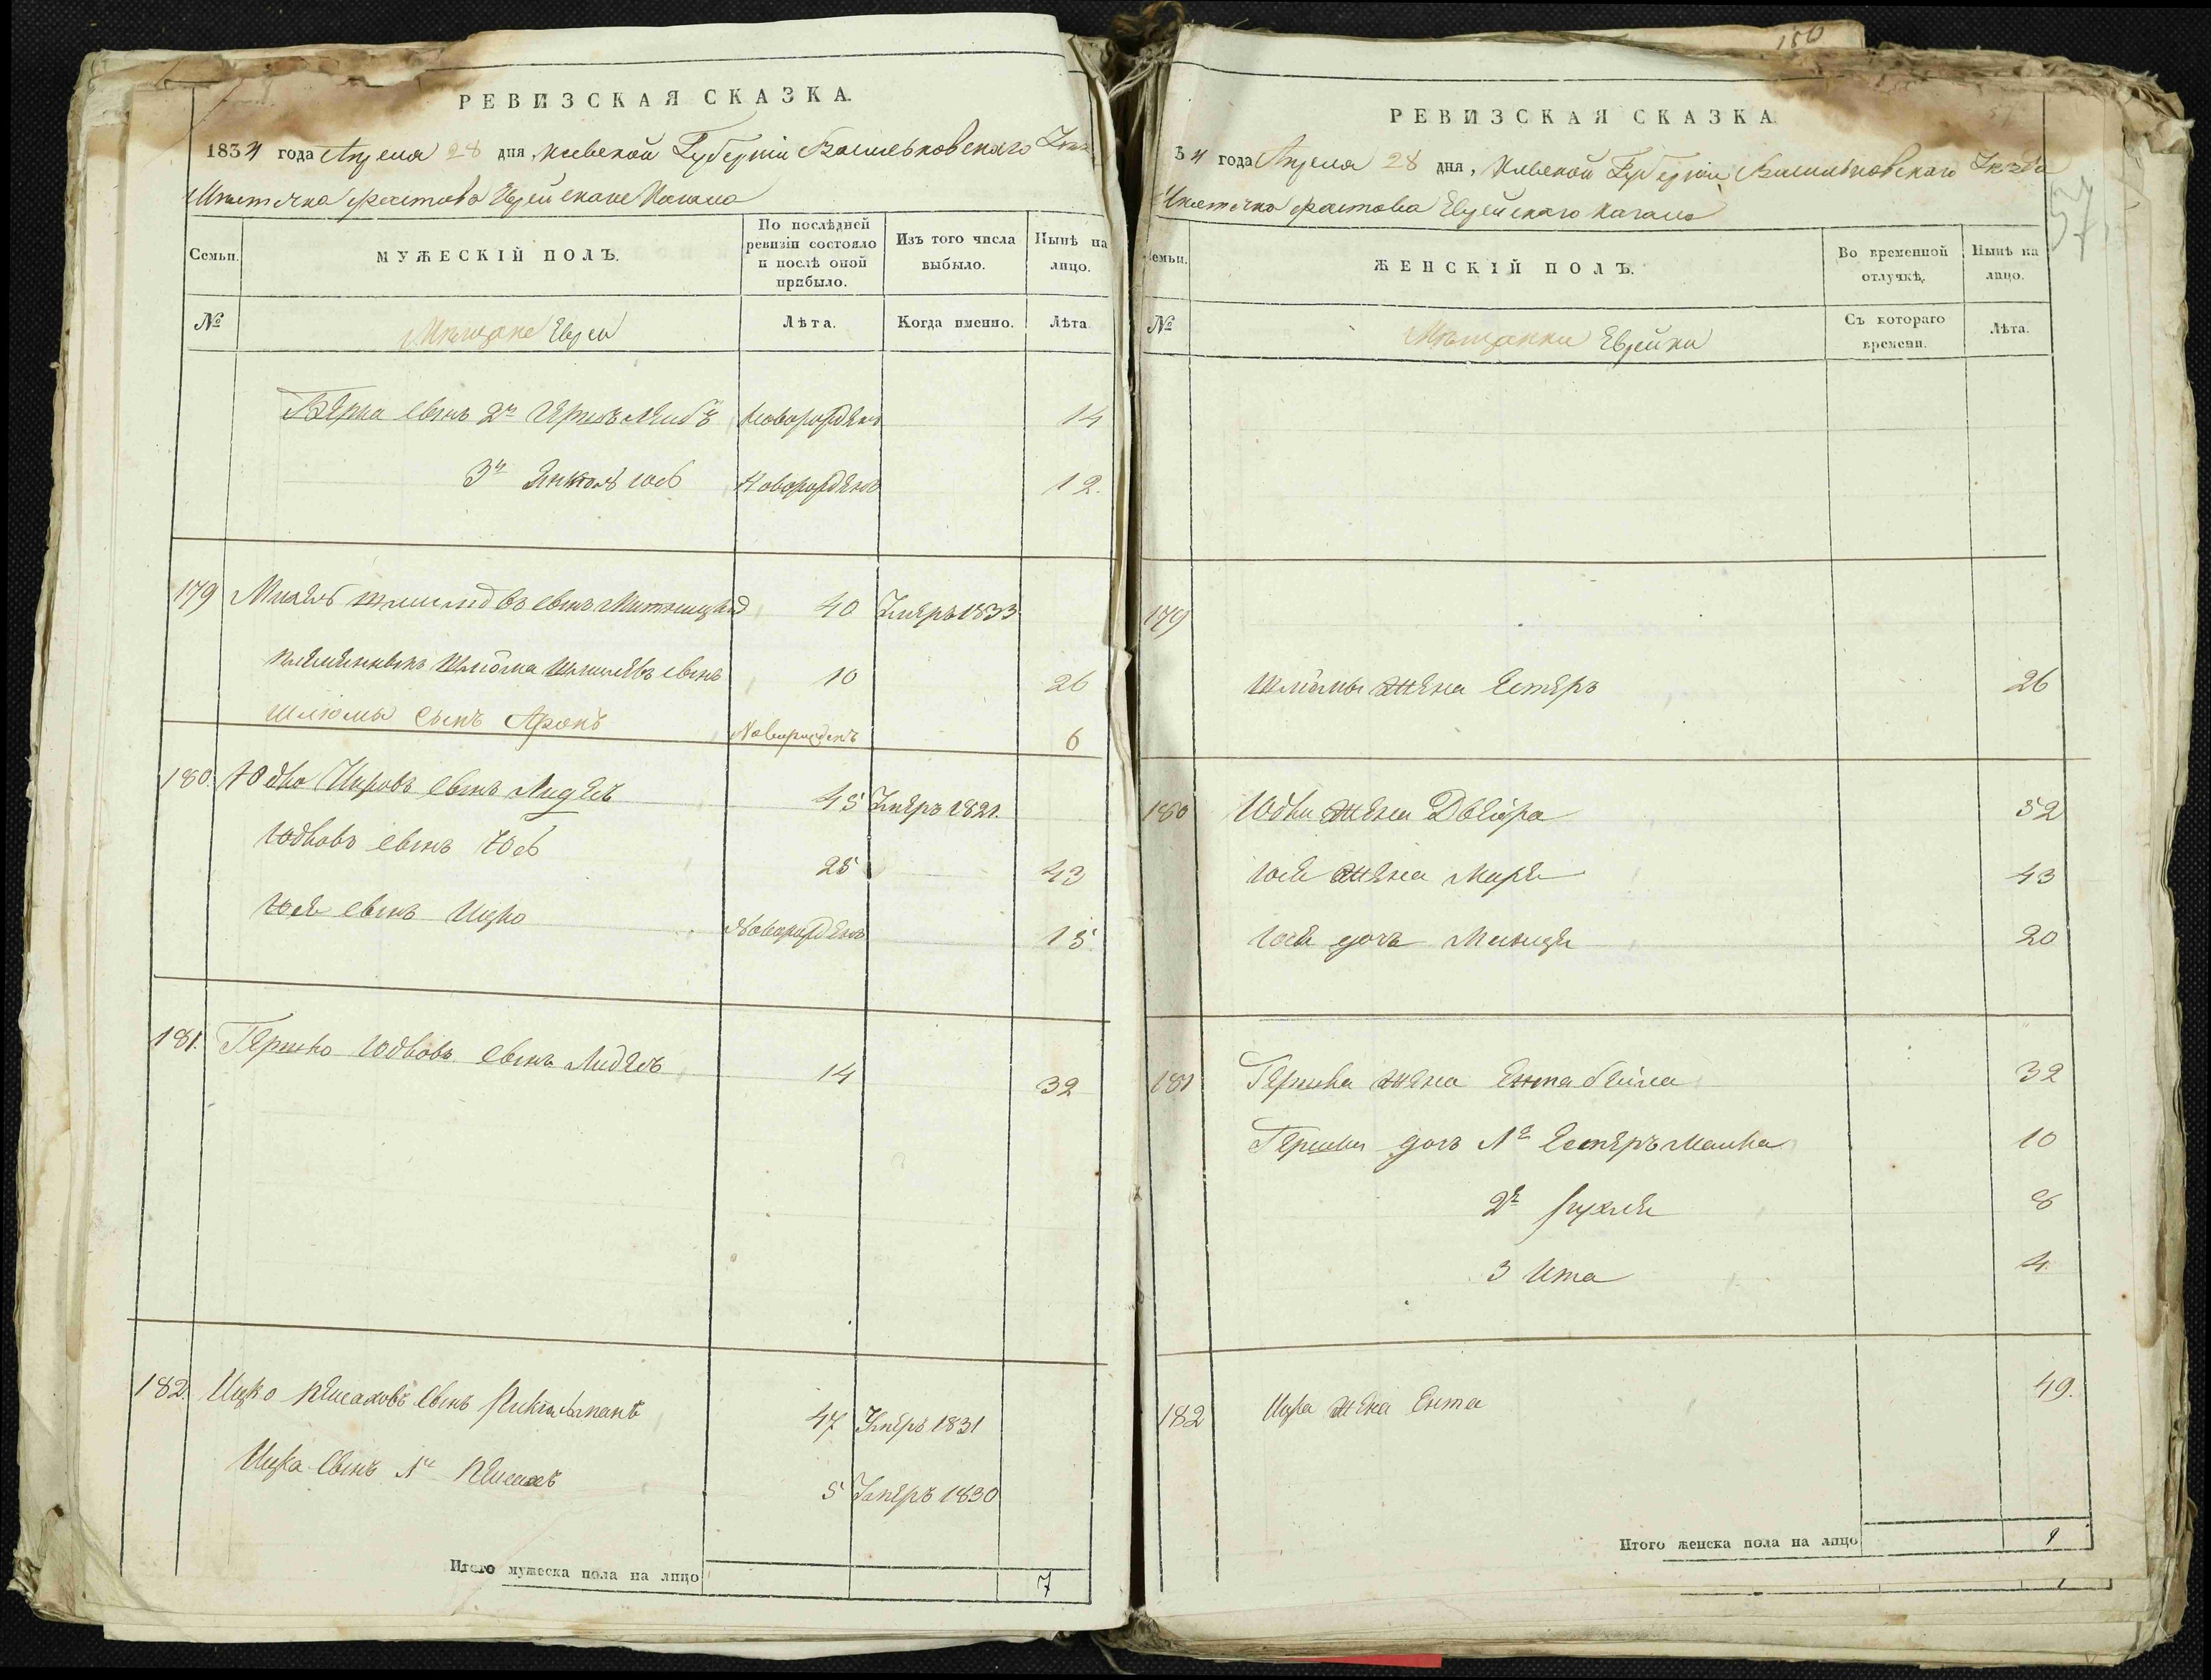 РЕВИЗСКАЯ СКАЗКА.
1834 года Апреля 28 дня, Киевской Губернии Васильковского
Местечка Фастова Еврейскаго Кагала
Семьи.
МУЖЕСКІЙ ПОЛЪ.
По послѣдней ревизіи состояло и послѣ оной прибыло.
Изъ того числа выбыло.
Нынѣ на лицо.
№
Мещане Евреи
Лѣта.
Когда именно.
Лѣта.
Берка сынъ 2й Гершъ Лейбъ Новорожденъ 14
3й Янкель Иось Новорожденъ 12.
179 Михель сынъ 40 Умеръ 1833
племянникъ Шлiома Шмилевъ сынъ 10 26
Шлiомы сынъ Аронъ Новорожденъ 6
180. Юдко Шировъ сынъ Лидѣль 45 Умеръ 1821.
Юдковъ сынъ Юсь 25 43
Юся сынъ Ицко Новорожденъ 15
181. Гершко Юдковъ сынъ Лидѣль 14 32
182. Ицко Пейсаховъ сынъ 47 Умеръ 1831
Ицка сынъ 1й Пейсахъ 5 Умеръ 1830
Итого мужеска пола на лицо 7
150
РЕВИЗСКАЯ СКАЗКА
34 года Апреля 28 дня, Киевской Губернии Васильковскаго Уезда
Местечка Фастова Еврейскаго Кагала
Семьи.
ЖЕНСКІЙ ПОЛЪ.
Во временной отлучкѣ,
Нынѣ на лицо.
№
Мещанки Еврейки
Съ котораго времени.
Лѣта.
179
Шлiомы жена Естеръ 26
180 Юдки жена Двейра 52
Юся жена Маря 43
Юся дочь Минця 20
181 Гершка жена Ента бейла 32
Гершки дочь 1я Естеръ Малка 10
2я Рухля 8
3 Ита 4.
182 Ицка жена Ента 49.
Итого женска пола на лицо 9